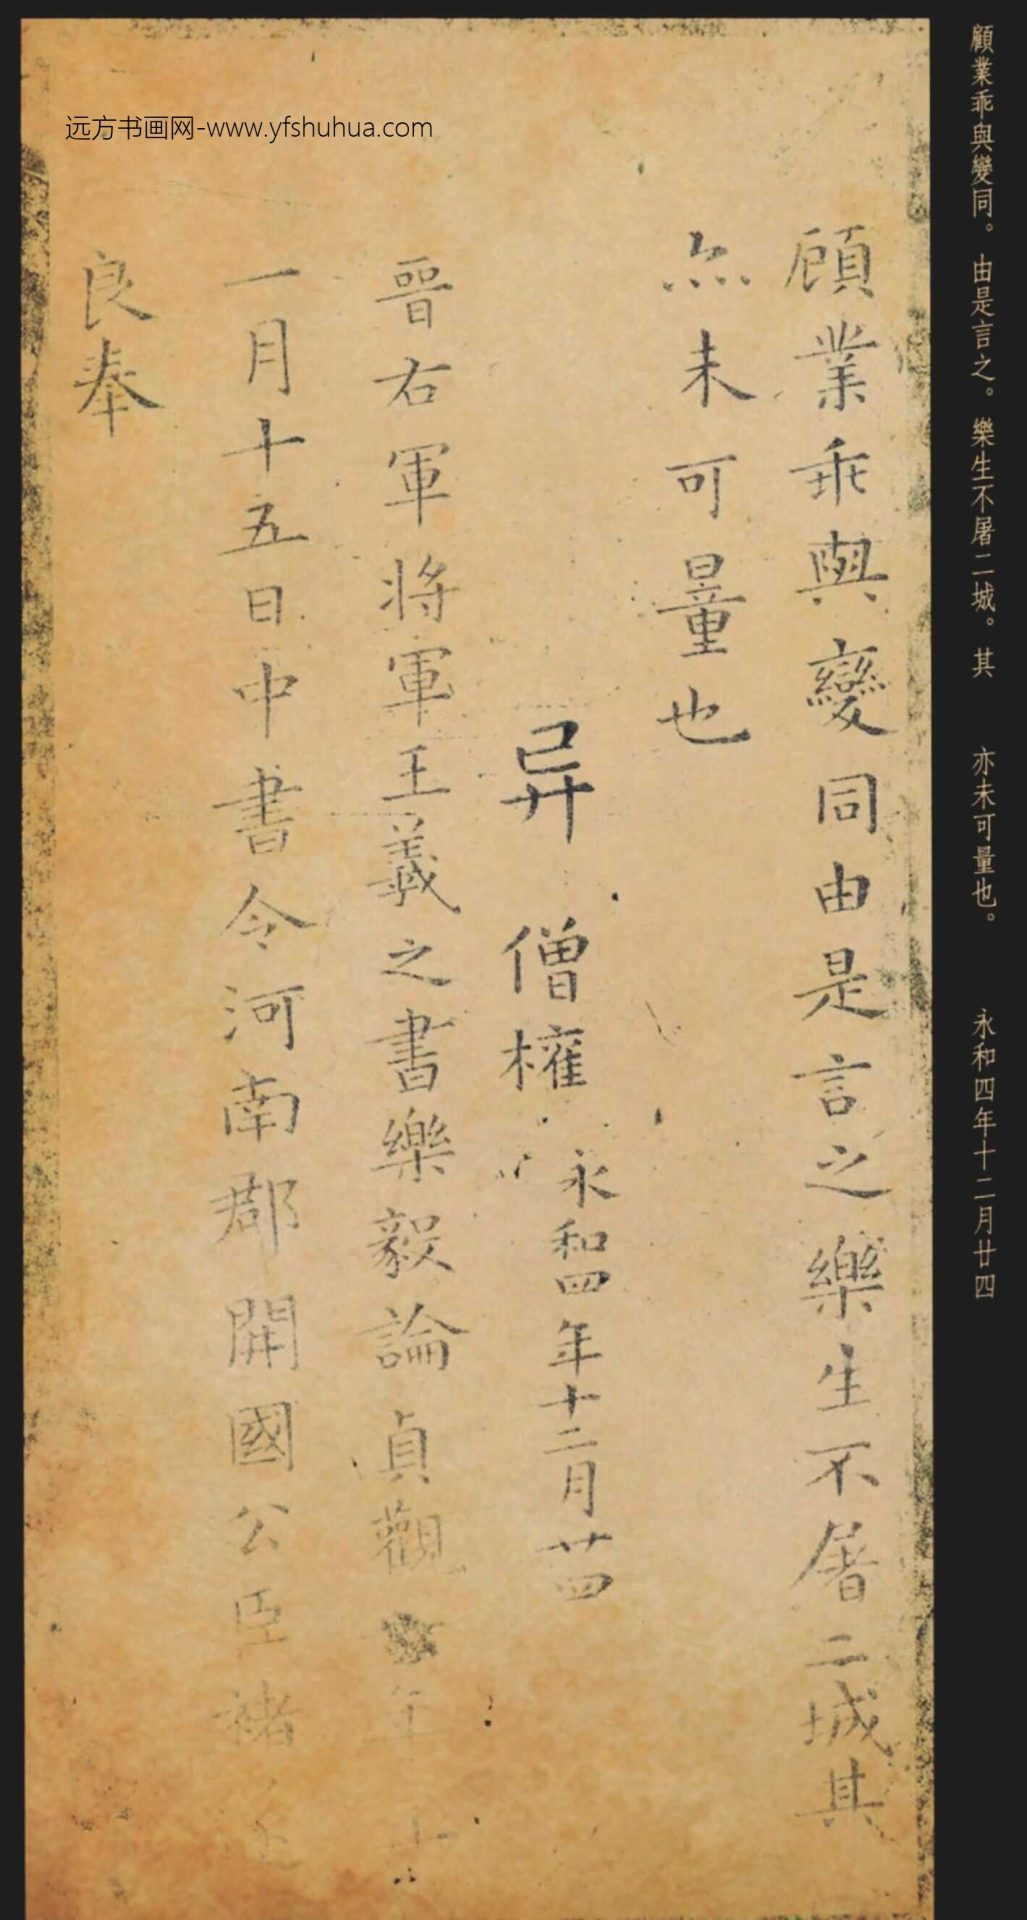 远方书画网-www.yfshuhua.com
顧業乖與變同。由是言之。樂生不屠二城。其 亦未可量也。 永和四年十二月廿四
顧業乖與變同由是言之樂生不屠二城其
亦未可量也
异 僧權
永和四年十二月廿四
晉右軍將軍王羲之書樂毅論貞觀 年十
一月十五日中書令河南郡開國公臣褚
良奉